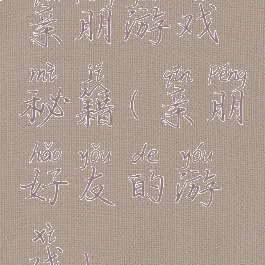 亲朋游戏
mì jí qīn péng
秘籍(亲朋
hǎo yǒu de yóu
好友的游
xì
戏)